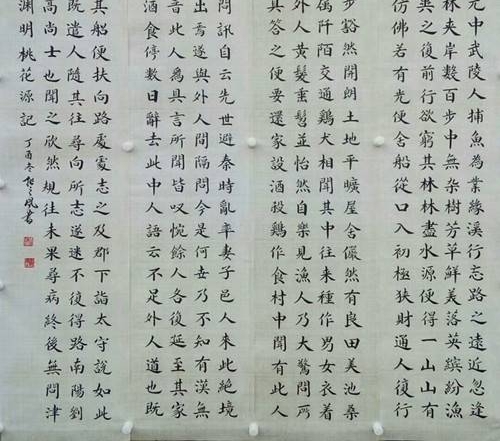 元中武陵人捕魚為業緣溪行忘路之遠近忽逢
林夹岸數百步中無杂樹芳草鮮美落英繽紛漁
異之復前行欲窮其林林盡水源便得一山山有
仿佛若有光便舍船從口入初極狹財通人復行
步豁然開朗土地平曠屋舍儼然有良田美池桑
属阡陌交通鷄犬相聞其中往来種作男女衣着
外人黄髮垂髫並怡然自樂見漁人乃大驚問所
具答之便要還家設酒殺鷄作食村中聞有此人
問訊自云先世避秦時亂率妻子邑人来此絕境
出焉遂與外人間隔問今是何世乃不知有漢無
晉此人為具言所聞皆叹惋餘人各復延至其家
酒食停數日辭去此中人語云不足外人道也既
其船便扶向路處處志之及郡下詣太守說如此
既遣人隨其往尋向所志遂迷不復得路南陽劉
高尚士也聞之欣然規往未果尋病終後無問津
渊明桃花源記 丁酉冬 書